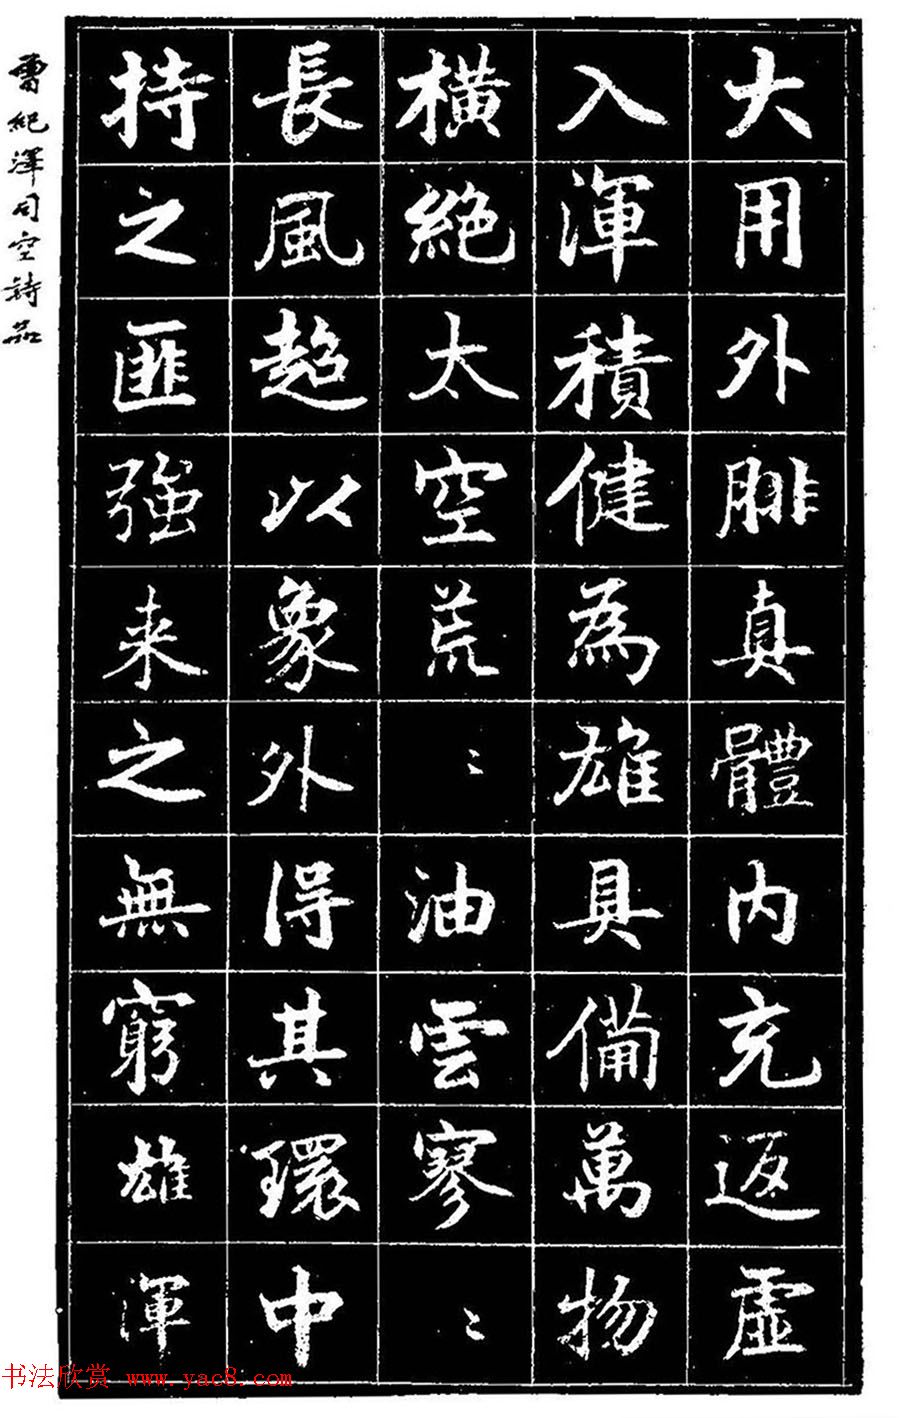 大用外腓真體內充返虛
入渾積健為雄具備萬物
橫絕太空荒〻油雲寥〻
長風超以象外得其環中
持之匪強来之無窮雄渾
曾紀澤司空詩品
书法欣赏 www.yac8.com